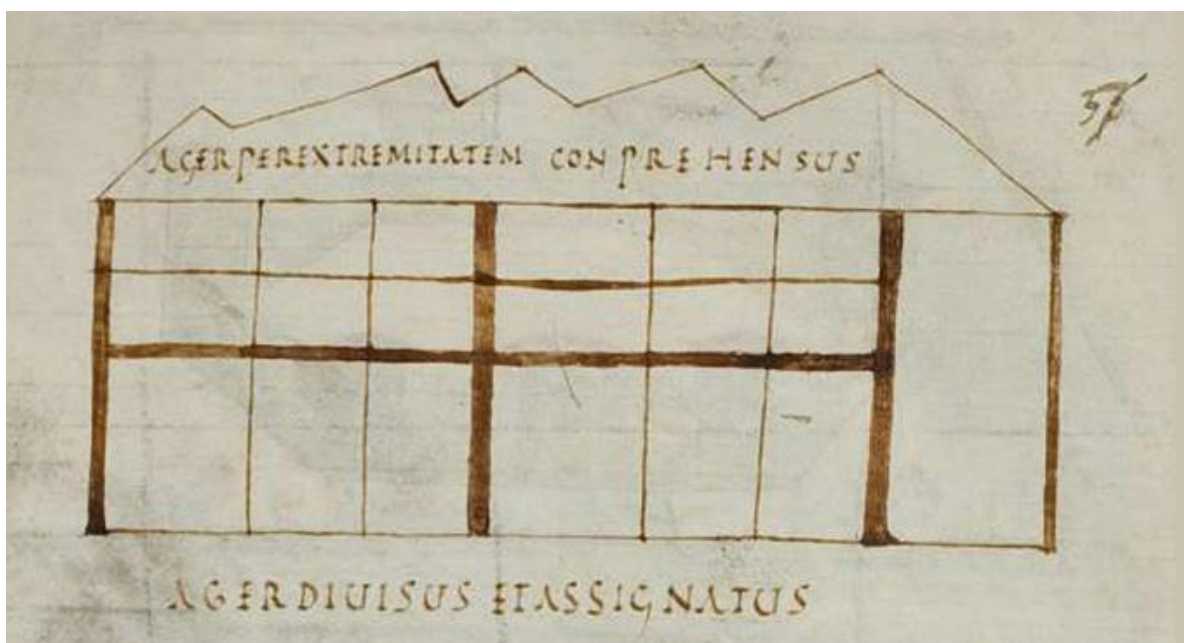 AGER PER EXTREMITATEM CONPREHENSUS
AGER DIUISUS ET ASSIGNATUS